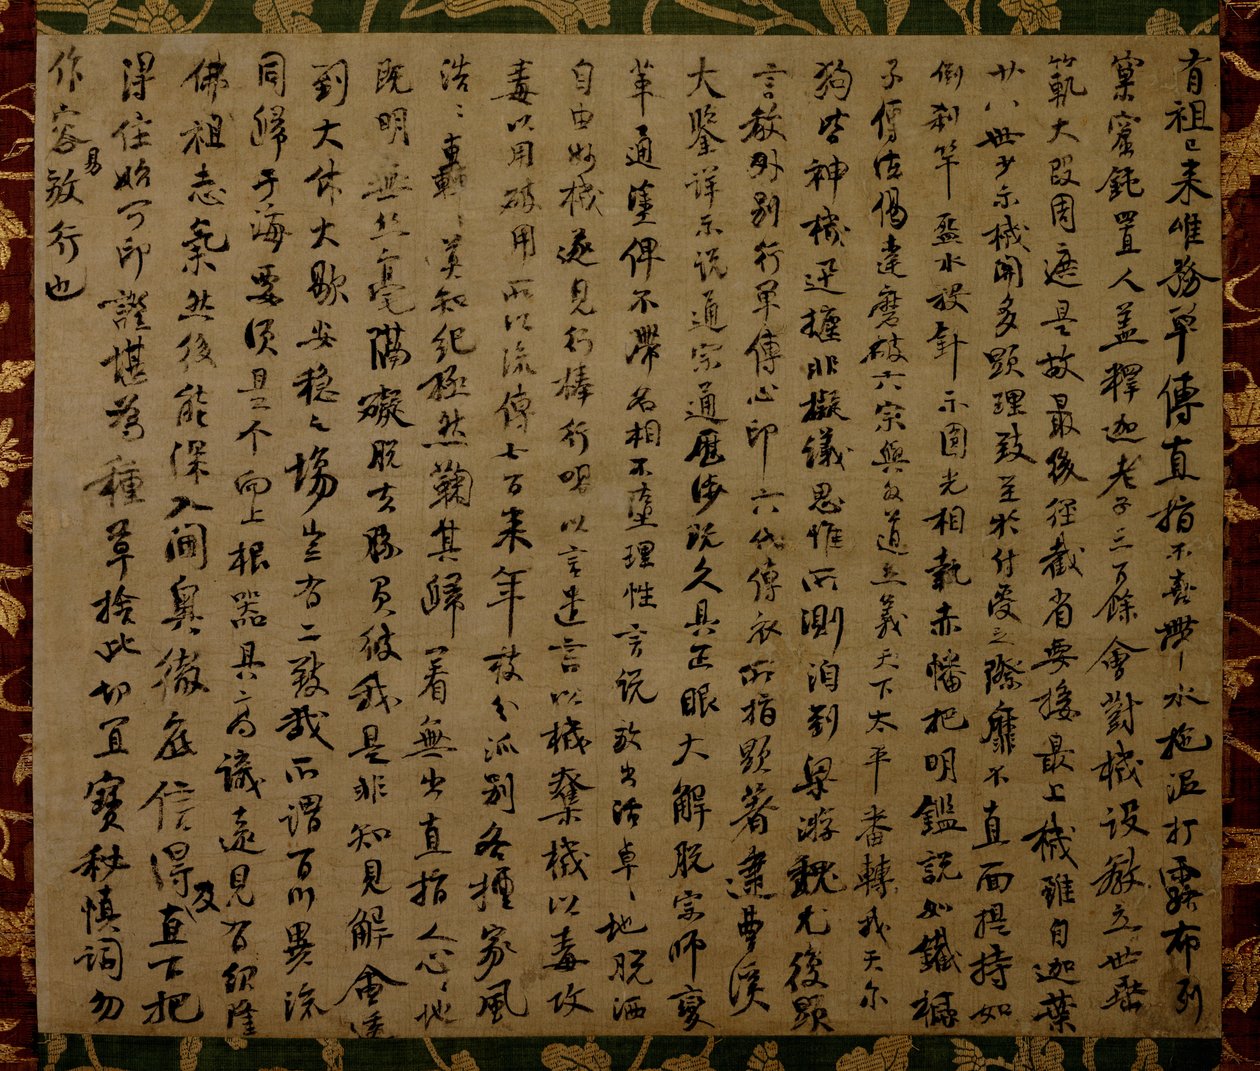 有祖已来唯務單傳直指不喜帶水拖泥打露布列
窠窟鈍置人盖釋迦老子三百餘會對機設教立世垂
範大段周遮是故最後徑截省要接最上機雖自迦葉
廿八世少示機關多顯理致至於付受之際靡不直面提持如
倒刹竿盌水投針示圓光相執赤幡把明鑑説如鐵橛
子傳法偈達磨破六宗與外道立義天下太平番轉我天尔
狗皆神機迅捷非擬議思惟所測洎到梁游魏尤復顯
言教外別行單傳心印六代傳衣所指顯著逮曹溪
大鑒詳示説通宗通歷涉既久具正眼大解脱宗師變
革通塗俾不滯名相不墮理性言説放出活卓〻地脱洒
自由妙機遂見行棒行喝以言遣言以機奪機以毒攻
毒以用破用所以流傳七百来年枝分派別各擅家風
浩〻轟〻莫知紀極然鞠其歸著無出直指人心〻地
既明無絲毫隔礙脱去勝負彼我是非知見解會透
到大休大歇安穩之場豈有二致哉所謂百川異流
同歸于海要須是个向上根器具高識遠見有紹隆
佛祖志氣然後能深入閫奥徹底信得及直下把
得住始可印證堪為種草捨此切宜寶秘慎詞勿
作容易放行也